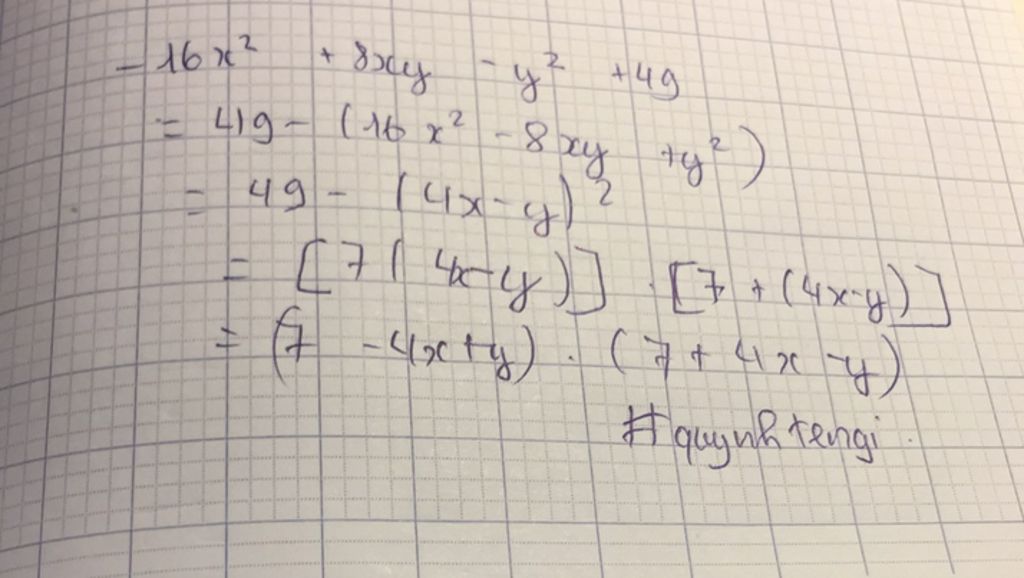 - 16x² + 8xy - y² + 49
= 49 - (16x² - 8xy + y²)
= 49 - (4x - y)²
= [7 ( 4x - y)] . [7 + (4x - y)]
= (7 - 4x + y) . (7 + 4x - y)
#quynhtengi.